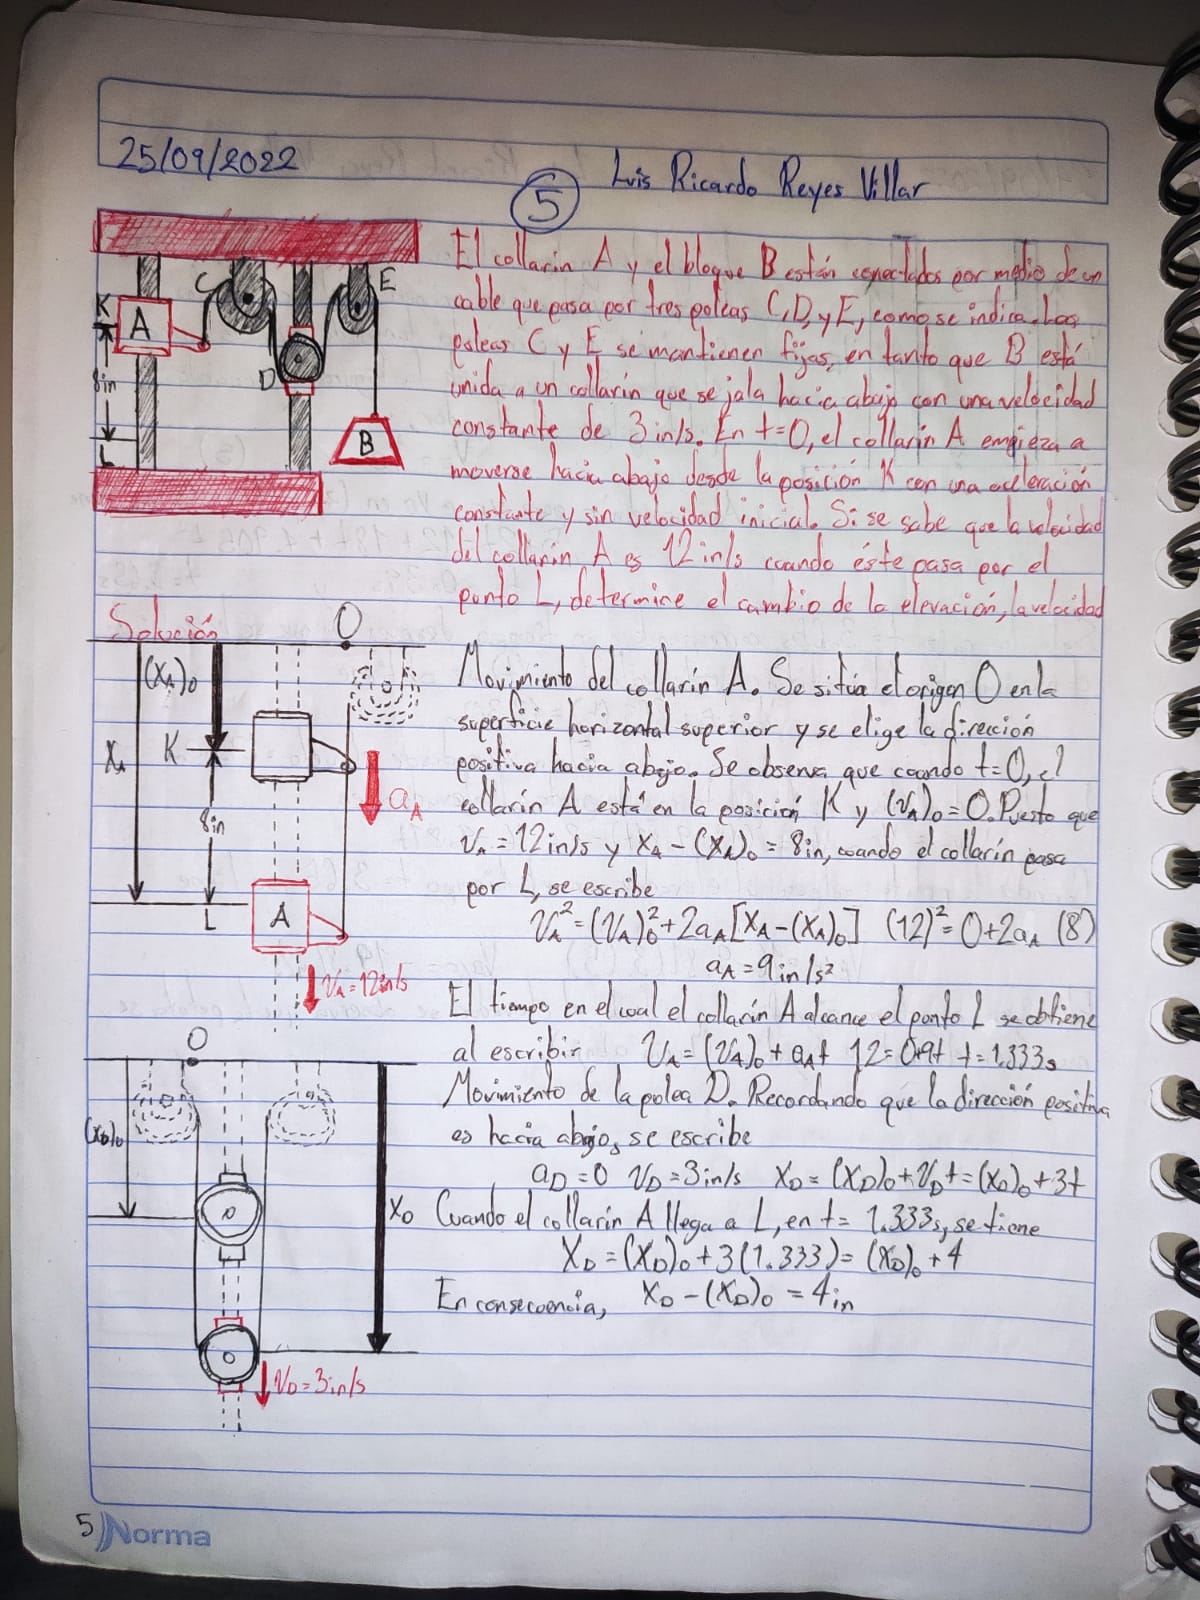 25/09/2022
Luis Ricardo Reyes Villar
5
El collarín A y el bloque B están conectados por medio de un
cable que pasa por tres poleas C, D, y E, como se indica. Las
poleas C y E se mantienen fijas, en tanto que B está
unida a un collarín que se jala hacia abajo con una velocidad
constante de 3 in/s. En t=0, el collarín A empieza a
moverse hacia abajo desde la posición K con una aceleración
constante y sin velocidad inicial. Si se sabe que la velocidad
del collarín A es 12 in/s cuando éste pasa por el
punto L, determine el cambio de la elevación, la velocidad
C
E
K
A
8in
D
L
B
Solución
O
(XA)0
XA
K
aA
8in
L
A
VA=12in/s
Movimiento del collarín A. Se sitúa el origen O en la
superficie horizontal superior y se elige la dirección
positiva hacia abajo. Se observa que cuando t=0, el
collarín A está en la posición K y (VA)0=0. Puesto que
VA=12in/s y XA-(XA)0=8in, cuando el collarín pasa
por L, se escribe
VA²=(VA)0²+2aA[XA-(XA)0] (12)²=0+2aA (8)
aA=9in/s²
El tiempo en el cual el collarín A alcance el punto L se obtiene
al escribir VA=(VA)0+aAt 12=0+9t t=1.333s
Movimiento de la polea D. Recordando que la dirección positiva
es hacia abajo, se escribe
aD=0 VD=3in/s XD=(XD)0+VDt=(XD)0+3t
Cuando el collarín A llega a L, en t= 1.333s, se tiene
XD=(XD)0+3(1.333)=(XD)0+4
En consecuencia, XD-(XD)0=4in
O
(XD)0
D
XD
VD=3in/s
5 Norma